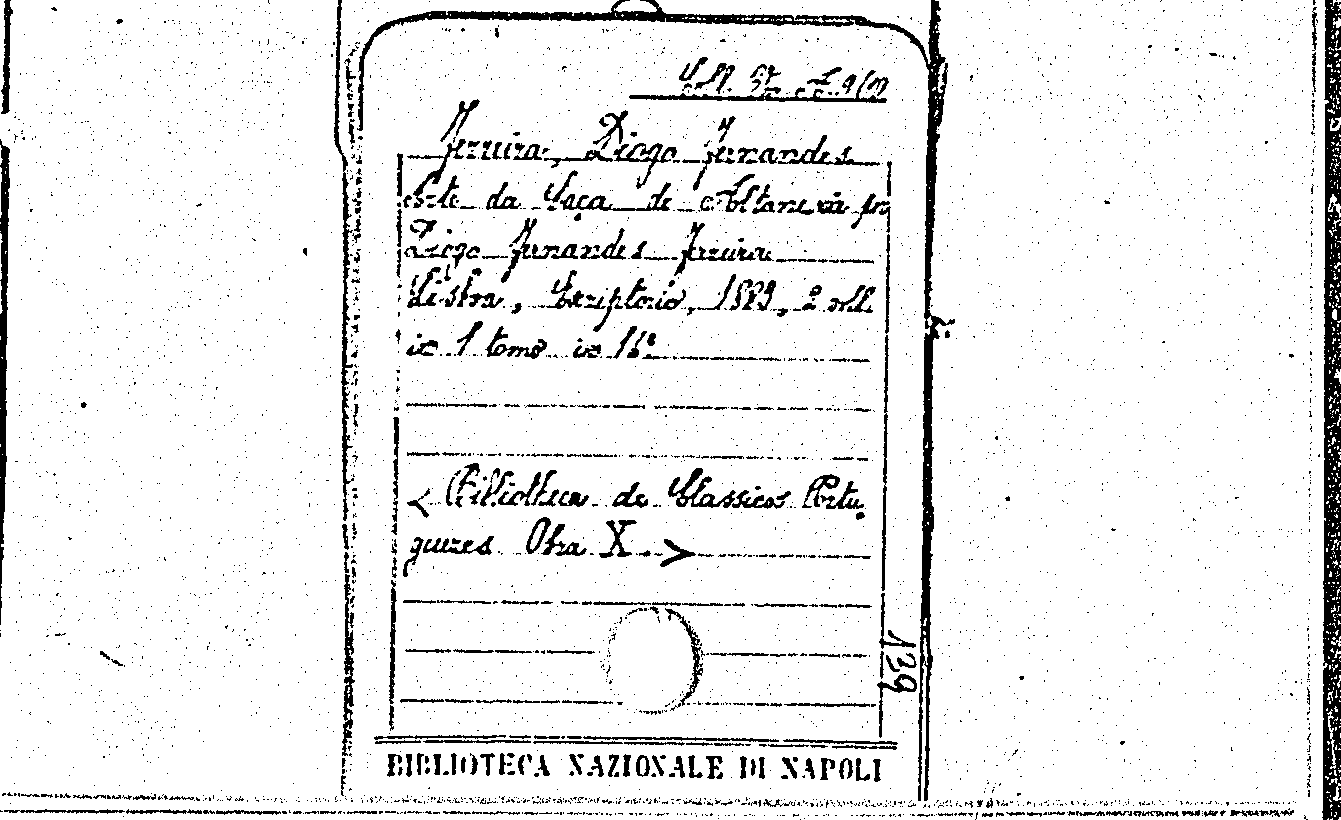 Ferreira, Diogo Fernandes
Arte da Caça de Altaneria per
Diogo Fernandes Ferreira
Lisboa, Escriptorio, 1899, 2 voll.
in 1 tomo in 16º
< Bibliotheca de Classicos Portu-
guezes Obra X. >
139
BIBLIOTECA NAZIONALE DI NAPOLI